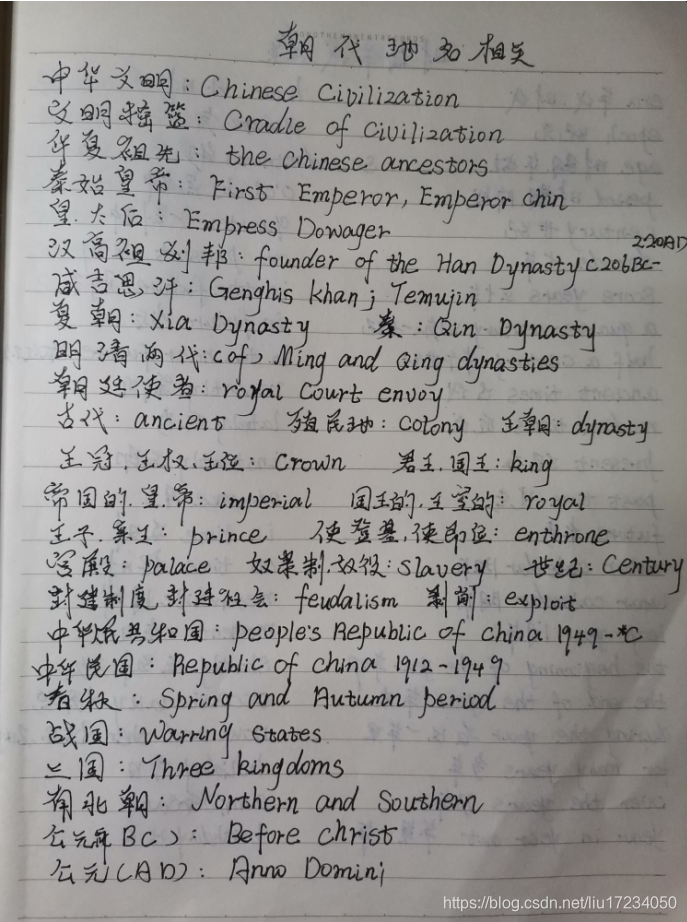 朝代地名相关
中华文明：Chinese Civilization
文明摇篮：Cradle of civilization
华夏祖先 the chinese ancestors
秦始皇帝：First Emperor, Emperor chin
皇太后：Empress Dowager
220AD
汉高祖刘邦：founder of the Han Dynasty C206BC-
成吉思汗：Genghis khan; Temujin
夏朝：Xia Dynasty 秦：Qin Dynasty
明清两代：(of) Ming and Qing dynasties
朝廷使者：royal Court envoy
古代：ancient 殖民地：colony 王朝：dynasty
王冠.王权.王位：Crown 君主.国王：king
帝国的.皇帝：imperial 国王的.王室的：royal
王子.亲王：prince 使登基,使即位：enthrone
宫殿：palace 奴隶制.奴役：slavery 世纪：Century
封建制度 封建社会：feudalism 剥削：exploit
中华人民共和国：people's Republic of china 1949-
中华民国：Republic of china 1912-1949
春秋：Spring and Autumn period
战国：Warring States
三国：Three kingdoms
南北朝：Northern and Southern
公元前BC)：Before christ
公元(AD)：Anno Domini
https://blog.csdn.net/liu17234050